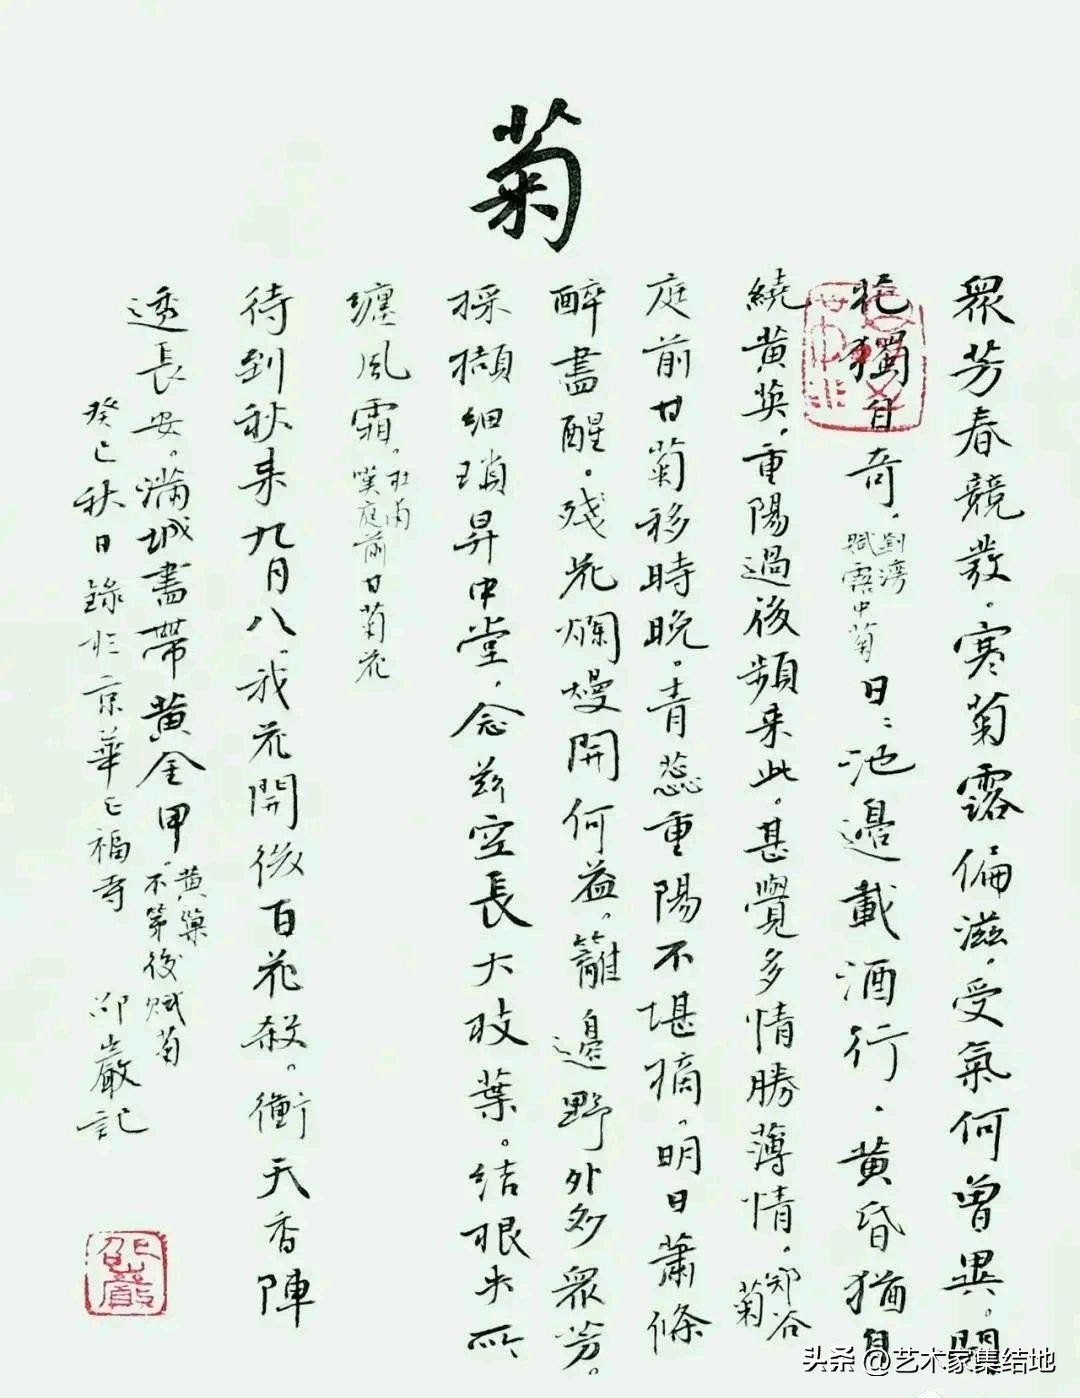 菊
衆芳春競發。寒菊露偏滋。受氣何曾異。開
花獨自奇。劉灣
賦露中菊日:池邊載酒行。黄昏猶自
繞黄英。重陽過後頻来此。甚覺多情勝薄情。鄭谷
菊
庭前甘菊移時晚。青蕊重陽不堪摘。明日蕭條
醉盡醒。殘花爛熳開何益。籬邊野外多衆芳。
採擷細瑣昇中堂。念兹空長大枝葉。結根失所
纏風霜。杜甫
嘆庭前甘菊花
待到秋来九月八。我花開後百花殺。衝天香陣
透長安。滿城盡帶黄金甲。黄巢
不第後賦菊
癸巳秋日錄於京華七福寺 邵巖記
邵巖
头条 @艺术家集结地